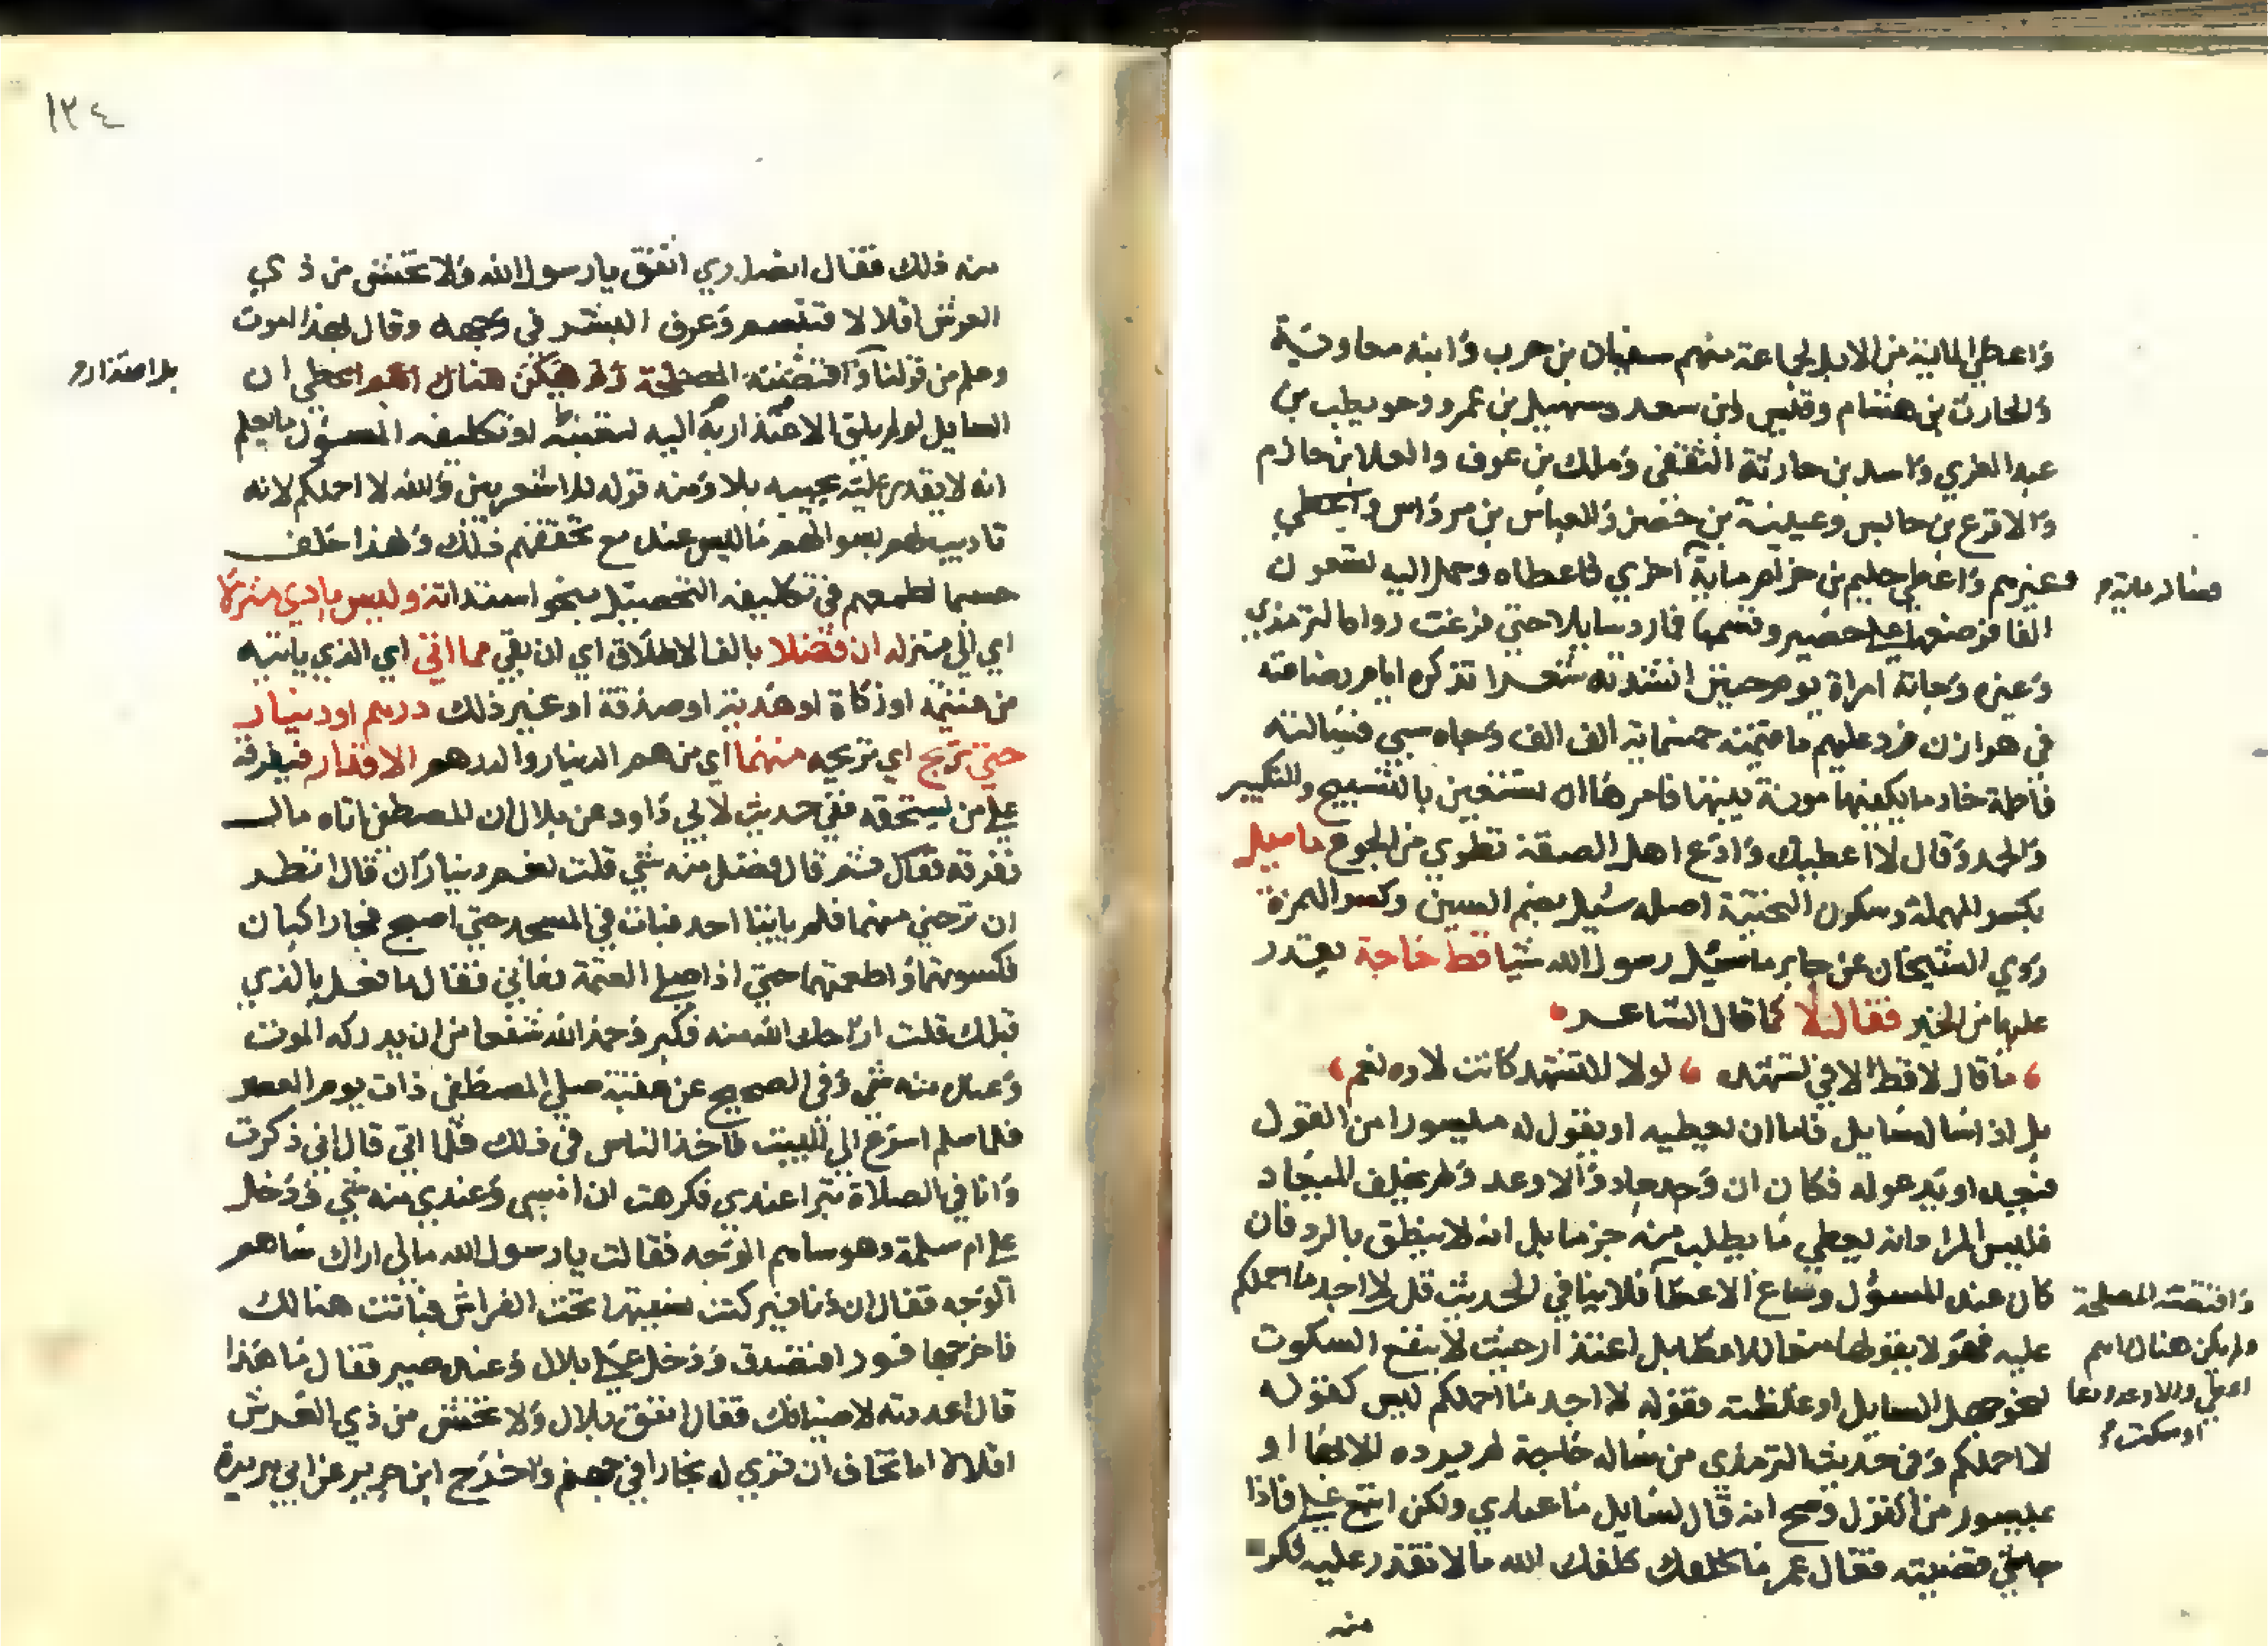 واعطي الماية من الابل لجماعة منهم سفيان بن حرب وابنه معاوية
والحارث بن هشام وقيس بن سعد وسهيل بن عمرو وحويطب بن
عبد العزي واسد بن حارثة الثقفي وملك بن عوف والعلا بن حارم
والاقرع بن حابس وعيينة بن حصن والعباس بن مرداس واعطي
وغيرهم واعطي حليم بن حزام ماية آخري فاعطاه وحمل اليه تسعون
فسال ماية
الفا فوضعها علي حصير وقسمها فما رد سايلا حتي فرغت رواه الترمذي
وغيره وجاته امراة يوم حنين انشدته شعرا تذكره ايام رضاعته
في هوازن فرد عليهم ما قيمته خمسماية الف الف وجاه سبي فسالته
فاطمة خادما يكفيها مونة بيتها فامرها ان تستعين بالتسبيح والتكبير
والحمد وقال لا اعطيك وادع اهل الصفة تطوي من الجوع ما سيل
بكسر المهملة وسكون التحتية اصله سئيل بضم السين وكسر الهمزة
روي الشيخان عن جابر ما سئيل رسول الله شيا قط حاجة يقدر
عليها من الخير فقال لا كما قال الشاعر
ما قال لا قط الا في تشهده لولا التشهد كانت لاوه نعم
بل اذا ساله سايل فاما ان يعطيه او يقول له ميسورا من القول
فيعده او يدعو له فكان ان وجد جاد والا وعد ولم يخلف الميعاد
فليس المراد انه يعطي ما يطلب منه جزما بل انه لا ينطق بالرد فان
كان عند المسؤل وساغ الاعطا فلا ينافي الحديث قل لا اجد ما احملكم
واقتضته المصلحة
ولم يكن هنالك اهم
اعطي والا وعد او دعا
او سكت
عليه فهو لا يقولها منعا للاعطا بل اعتذارا حيث لا ينفع السكوت
لنحو جهل السايل او غلظته فقوله لا اجد ما احملكم ليس كقوله
لا احملكم وفي حديث الترمذي من ساله حاجة لم يرده الا بها او
بميسور من القول وصح انه قال لسايل ما عندي ولكن ابتع علي فاذا
جاني قضيته فقال عمر ما كلفك الله ما لا تقدر عليه فكره
منه
١٢٤
منه ذلك فقال انصاري انفق يا رسول الله ولا تخش من ذي
العرش اقلالا فتبسم وعرف البشر في وجهه وقال بهذا امرت
وعلم من قولنا واقتضته المصلحة ولم يكن هناك اهم اعطي ان
السايل لو لم يلق الاعتذار به اليه لتعنته او تكليفه المسؤل ما يعلم
بل اعتذار
انه لا يقدر عليه يجيبه بلا ومنه قوله للاشعريين والله لا احملكم لانه
تاديب لهم بسوالهم ما ليس عنده مع تحققهم ذلك ولهذا حلف
حسما لطمعهم في تكليفه التحصيل بنحو استدانة وليس ياوي منزلا
اي الي منزله ان فضلا بالف الاطلاق اي ان بقي مما اتي اي الذي ياتيه
من غنيمة او زكاة او هدية او صدقة او غير ذلك درهم او دينار
حتي تريح اي تريحه منهما اي من هم الدينار والدرهم الاقدار فيفرقه
علي من يستحقه ففي حديث لابي داود عن بلال ان المصطفي اتاه مال
ففرقه فقال ثم قال فضل منه شي قلت نعم ديناران قال انظر
ان ترحني منهما فلم ياتنا احد فبات في المسجد حتي اصبح فجا راكبان
فكسوتهما واطعمتهما حتي اذا صلي العتمة دعاني فقال ما فعل بالذي
قبلك قلت اراحك الله منه فكبر وحمد الله شفقا من ان يدركه الموت
وعنده منه شي وفي الصحيح عن عقبة صلي المصطفي ذات يوم العصر
فلما سلم اسرع الي البيت فاخذ الناس في ذلك فلما اتي قال اني ذكرت
وانا في الصلاة تبرا عندي فكرهت ان امسي وعندي منه شي ودخل
علي ام سلمة وهو ساهم الوجه فقالت يا رسول الله مالي اراك ساهم
الوجه فقال ان دنانير كنت نسيتها تحت الفراش فباتت هنالك
فاخرجها فورا فتصدق ودخل علي بلال وعنده صبر فقال ما هذا
قال اعددته لاضيافك فقال انفق بلال ولا تخش من ذي العرش
اقلالا اما تخاف ان فوري له بخارا في جهنم واخرج ابن جرير عن ابي هريرة